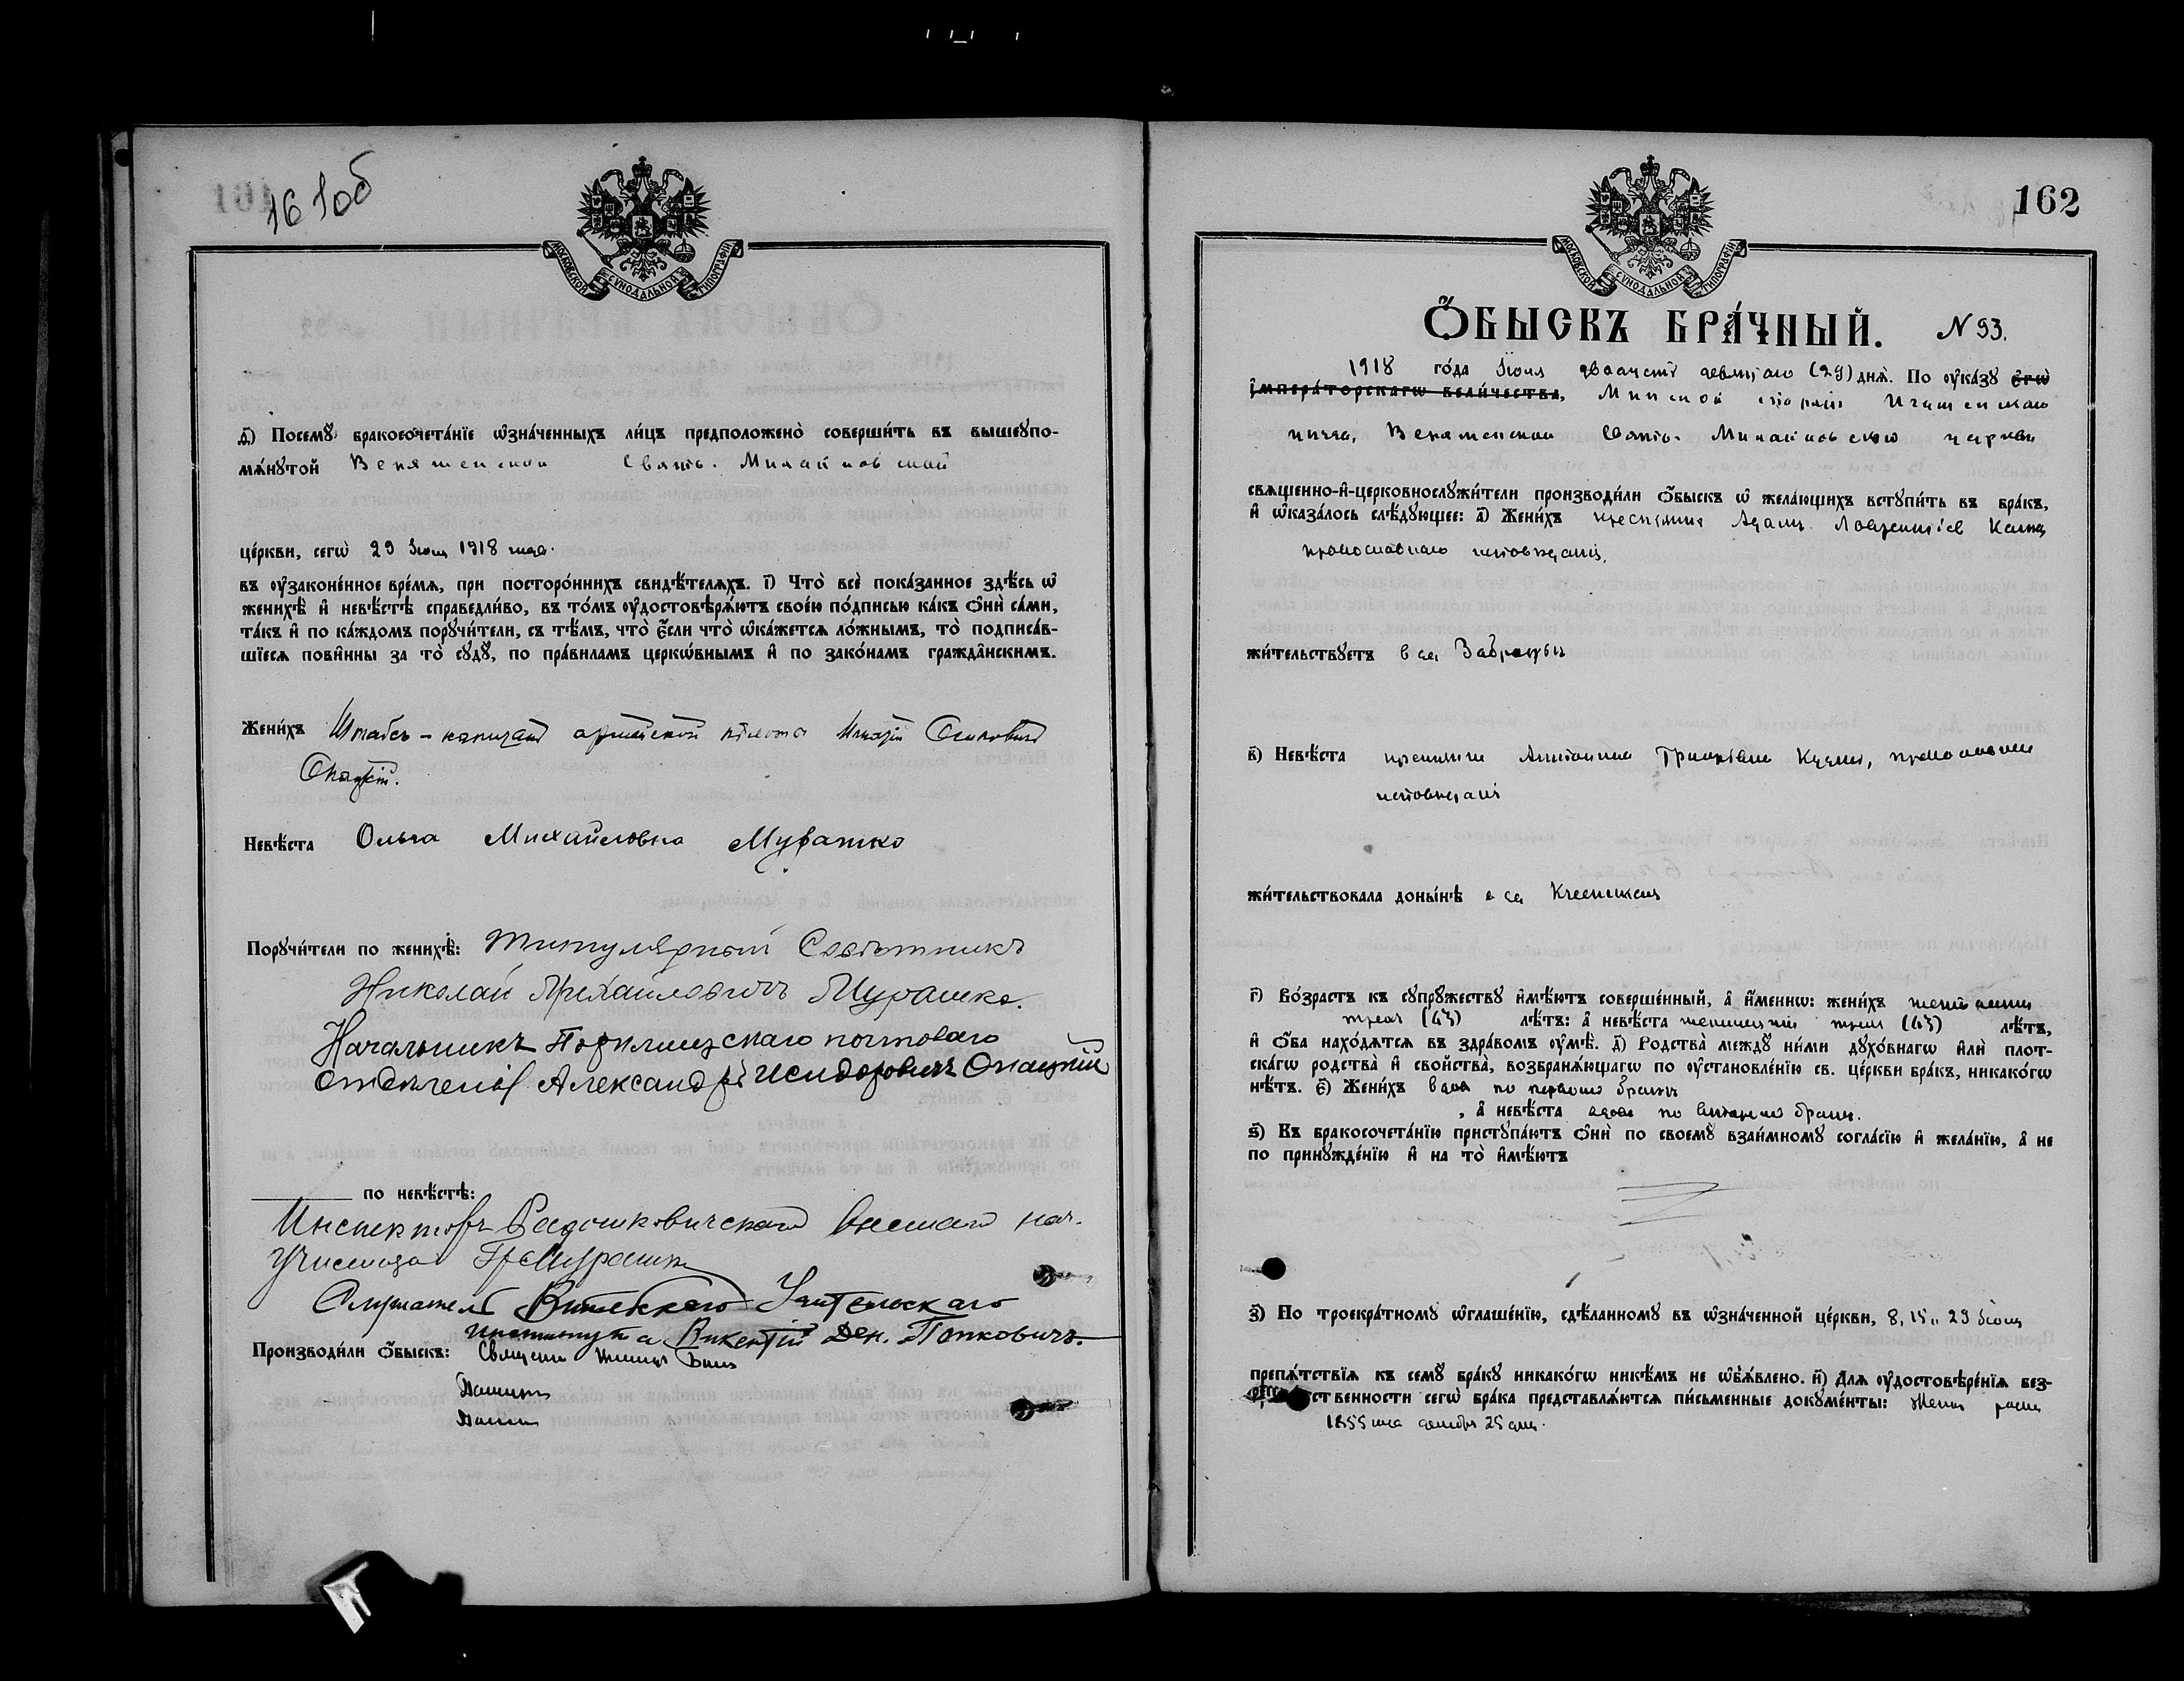 161об
МОСКОВСКОЙ СѴНОДАЛЬНОЙ ТИПОГРАФІИ
д҃) Посемꙋ̀ бракосочета́нїе ѡ҆зна́ченныхъ ли́цъ предположено̀ соверши́ть въ вышеꙋпо-
мѧ́нꙋтой Свято. Михайловской
це́ркви, сегѡ̀ 29 Іюня 1918 года.
въ ᲂу҆зако́ненное вре́мѧ, при посторо́ннихъ свидѣ́телѧхъ. і҃) Что̀ всѐ пока́занное здѣ́сь ѡ҆
женихѣ̀ и҆ невѣ́стѣ справедли́во, въ то́мъ ᲂу҆достовѣрѧ́ютъ свое́ю по́дписью ка́къ ѻ҆нѝ са́ми,
та́къ и҆ по ка́ждомъ порꙋчи́тели, съ тѣ́мъ, что̀ є҆́сли что̀ ѡ҆ка́жетсѧ ло́жнымъ, то̀ подписа́в-
шїесѧ пови́нны за то̀ сꙋдꙋ̀, по пра́виламъ церко́внымъ и҆ по зако́намъ гражда̂нскимъ.
Жени́хъ Штабсъ-капитанъ армейской пѣхоты Осиповичъ
Опацкій.
Невѣ́ста Ольга Михайловна Мурашко
Порꙋчи́тели по женихѣ̀: Титулярный Совѣтникъ
Николай Михаиловичъ Мурашко.
Начальникъ почтоваго
отдѣленія Александръ Исидоровичъ Опацкій
по невѣ́стѣ:
Инспекторъ Радошковичскаго высшаго нач.
училища Мурашко
Слушатель Витебскаго Учительскаго
Института Викентій Ден. Петковичъ.
Производи́ли ѻ҆́быскъ: Священникъ
162
МОСКОВСКОЙ СѴНОДАЛЬНОЙ ТИПОГРАФІИ
Ѻ҆́БЫСКЪ БРА́ЧНЫЙ. N 93.
1918 го́да Іюня двадцать девятаго (29) днѧ̀. По ᲂу҆ка́зꙋ є҆гѡ̀
і҆мпера́торскагѡ вели́чества, Минской епархіи Игуменскаго
уѣзда, Свято. Михайловской церкви
свѧще́нно-и҆-церковнослꙋжи́тели производи́ли ѻ҆́быскъ ѡ҆ жела́ющихъ встꙋпи́ть въ бра́къ,
и҆ ѡ҆каза́лось слѣ́дꙋющее: а҃) Жени́хъ крестьянинъ Адамъ Лаврентіев
православнаго исповѣданія,
жи́тельствꙋетъ в дер
в҃) Невѣ́ста крестьянка Антонина православнаго
исповѣданія
жи́тельствовала доны́нѣ в дер
г҃) Во́зрастъ къ сꙋпрꙋ́жествꙋ и҆мѣ́ютъ соверше́нный, а҆ и҆́менно: жени́хъ
трехъ (63) лѣ́тъ: а҆ невѣ́ста трехъ (43) лѣ́тъ,
и҆ ѻ҆́ба нахо́дѧтсѧ въ здра́вомъ ᲂу҆мѣ̀. д҃) Родства̀ междꙋ̀ ни́ми дꙋхо́внагѡ и҆лѝ плот-
ска́гѡ родства̀ и҆ сво́йства, возбранѧ́ющагѡ по ᲂу҆становле́нїю св. це́ркви бра́къ, никако́гѡ
нѣ́тъ. є҃) Жени́хъ вдов по первомъ бракѣ
, а҆ невѣ́ста вдова по второмъ бракѣ.
ѕ҃) Къ бракосочета́нїю пристꙋпа́ютъ ѻ҆нѝ по своемꙋ̀ взаи́мномꙋ согла́сїю и҆ жела́нїю, а҆ не
по принꙋжде́нїю и҆ на то̀ и҆мѣ́ютъ
з҃) По троекра́тномꙋ ѡ҆глаше́нїю, сдѣ́ланномꙋ въ ѡ҆зна́ченной це́ркви, 8, 15 и 29 Іюня
препѧ́тствїѧ къ семꙋ̀ бра́кꙋ никако́гѡ никѣ́мъ не ѡ҆б̾ѧ́влено. и҃) Длѧ ᲂу҆достовѣре́нїѧ без-
ственности сегѡ̀ бра́ка представлѧ́ютсѧ пи́сьменные докꙋме́нты: Жених
1855 года декабря 25 дня.